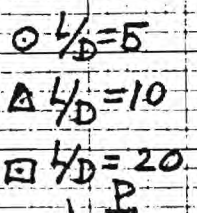 ⊙ L/D=5
△ L/D=10
⊡ L/D=20
P